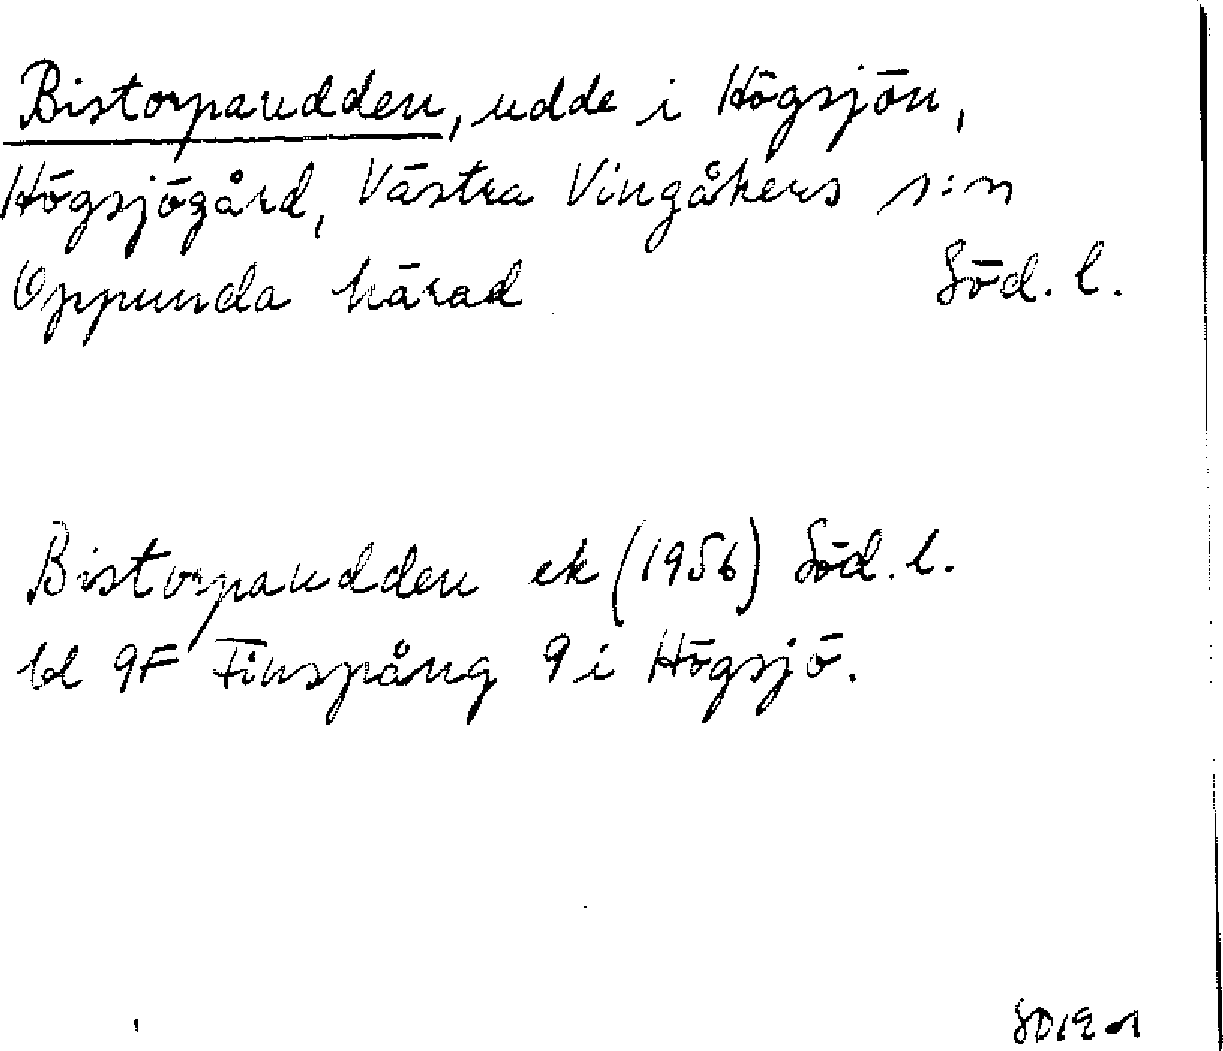 Bistorpaudden, udde i Högsjön,
Högsjögård, Västra Vingåkers s:n
Oppunda härad Söd. l.
Bistorpaudden ek (1956) Söd. l.
bl 9F Finspång 9 i Högsjö.